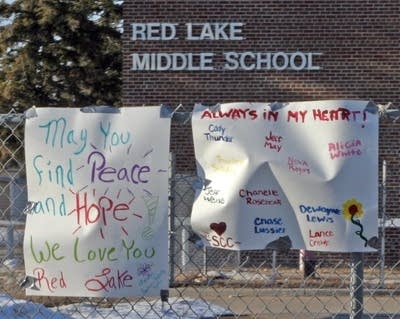 RED LAKE
MIDDLE SCHOOL
May You
find Peace
and Hope
We Love You
Red Lake
ALWAYS IN MY HEART!
Cody
Thunder
Jeff
May
Alicia
White
Jeff
Weise
Chanelle
Rosebear
Chase
Lussier
DeWayne
Lewis
Lance
Crowe
SCC